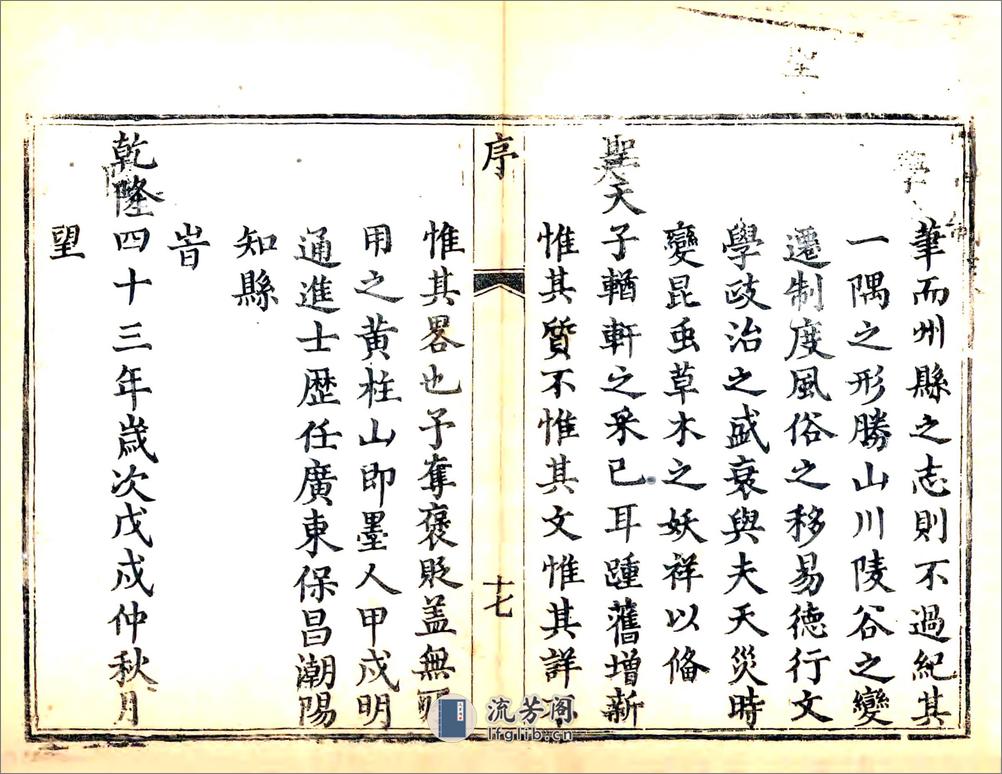 華而州縣之志則不過紀其
一隅之形勝山川陵谷之變
遷制度風俗之移易德行文
學政治之盛衰與夫天災時
變昆虫草木之妖祥以俻
聖天子輶軒之采已耳踵舊增新
惟其質不惟其文惟其詳不
序
十七
惟其畧也予奪褒貶盖無所
用之黄柱山即墨人甲戌明
通進士歴任廣東保昌潮陽
知縣
旹
乾隆四十三年歲次戊戌仲秋月
望
聖
學
流芳阁
lfglib.cn